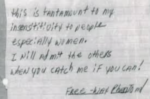 this is tantamount to my
insensitivity to people
especially women.
I will admit the others
when you catch me if you can!